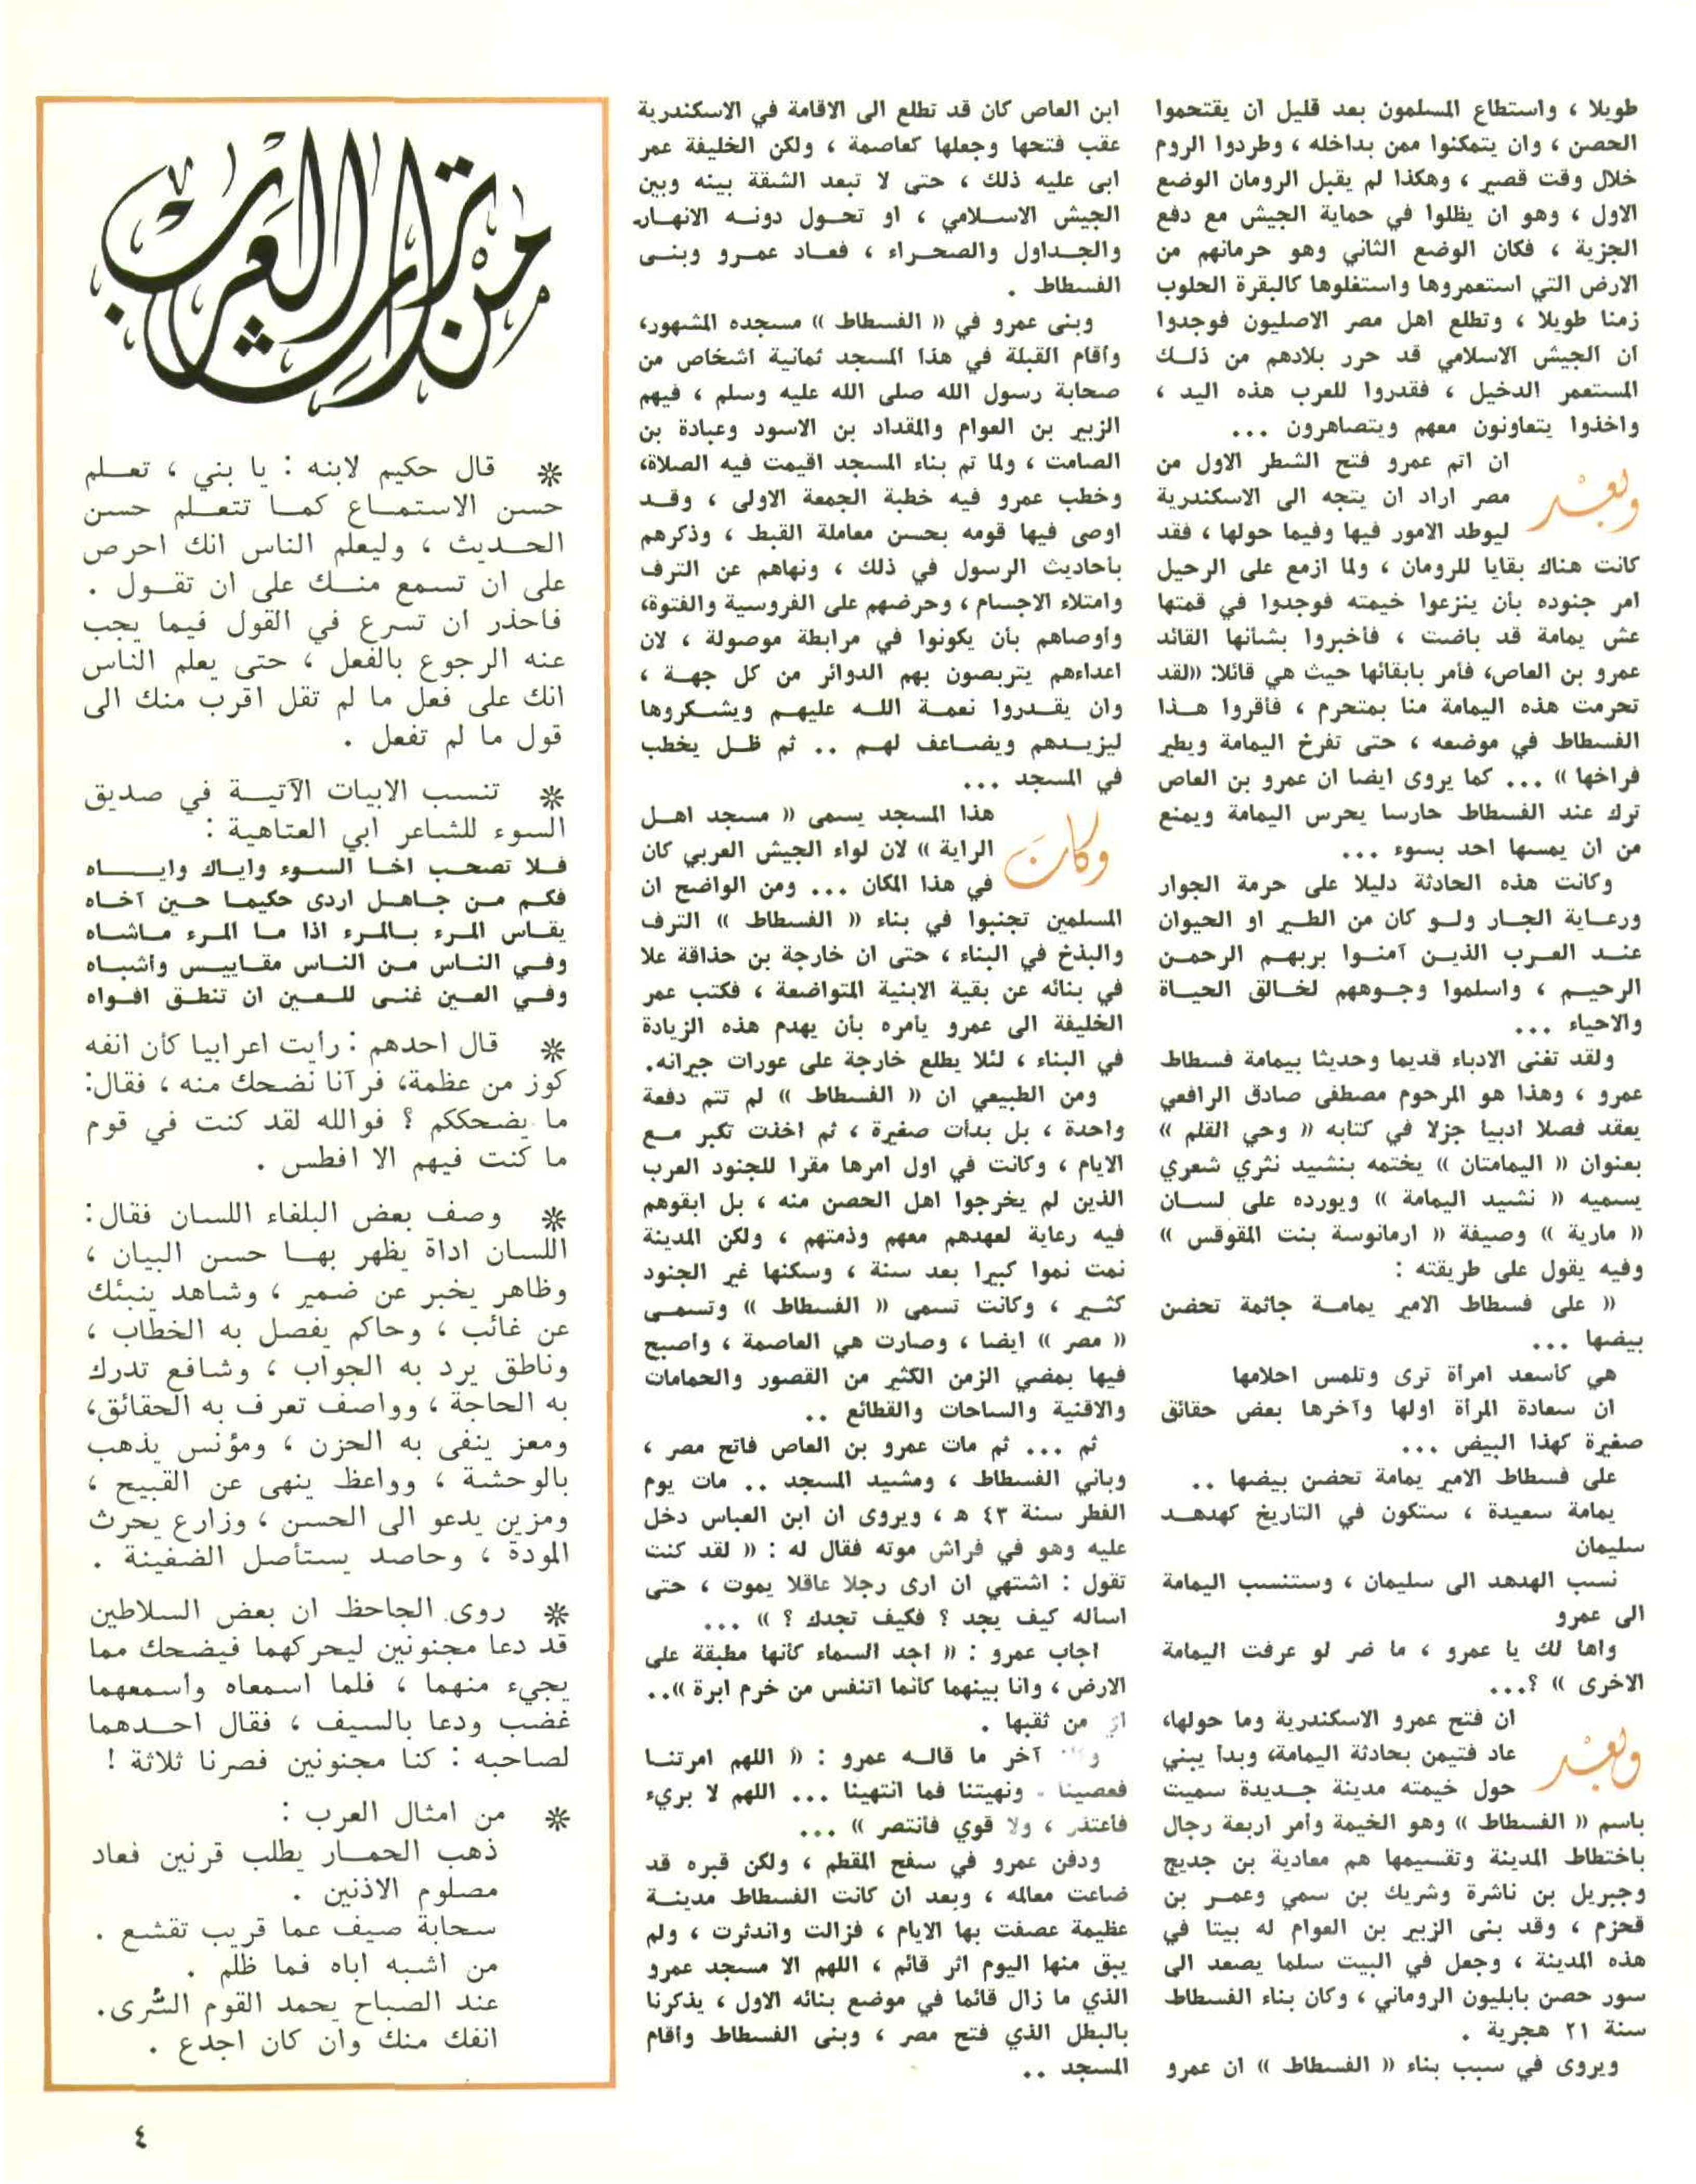 طويلا ، واستطاع المسلمون بعد قليل أن يقتحموا
الحصن ، وان يتمكنوا ممن بداخله ، وطردوا الروم
خلال وقت قصير ، وهكذا لم يقبل الرومان الوضع
الاول ، وهو ان يظلوا في حماية الجيش مع دفع
الجزية ، فكان الوضع الثاني وهو حرمانهم من
الارض التي استعمروها واستغلوها كالبقرة الحلوب
زمنا طويلا ، وتطلع اهل مصر الاصليون فوجدوا
ان الجيش الاسلامي قد حرر بلادهم من ذلك
المستعمر الدخيل ، فقدروا للعرب هذه اليد ،
واخذوا يتعاونون معهم ويتصاهرون ...
وبعد ان اتم عمرو فتح الشطر الاول من
مصر اراد ان يتجه الى الاسكندرية
ليوطد الامور فيها وفيما حولها ، فقد
كانت هناك بقايا للرومان ، ولما ازمع على الرحيل
امر جنوده بأن ينزعوا خيمته فوجدوا في قمتها
عش يمامة قد باضت ، فأخبروا بشأنها القائد
عمرو بن العاص، فأمر بابقائها حيث هي قائلا: «لقد
تحرمت هذه اليمامة منا بمتحرم ، فأقروا هذا
الفسطاط في موضعه ، حتى تفرخ اليمامة ويطير
فراخها » ... كما يروى ايضا ان عمرو بن العاص
ترك عند الفسطاط حارسا يحرس اليمامة ويمنع
من ان يمسها احد بسوء ...
وكانت هذه الحادثة دليلا على حرمة الجوار
ورعاية الجار ولو كان من الطير او الحيوان
عند العرب الذين آمنوا بربهم الرحمن
الرحيم ، واسلموا وجوههم لخالق الحياة
والاحياء ...
ولقد تغنى الادباء قديما وحديثا بيمامة فسطاط
عمرو ، وهذا هو المرحوم مصطفى صادق الرافعي
يعقد فصلا ادبيا جزلا في كتابه « وحي القلم »
بعنوان « اليمامتان » يختمه بنشيد نثري شعري
يسميه « نشيد اليمامة » ويورده على لسان
« مارية » وصيفة « ارمانوسة بنت المقوقس »
وفيه يقول على طريقته :
« على فسطاط الامير يمامة جاثمة تحضن
بيضها ...
هي كأسعد امرأة ترى وتلمس احلامها
ان سعادة المرأة اولها وآخرها بعض حقائق
صغيرة كهذا البيض ...
على فسطاط الامير يمامة تحضن بيضها ..
يمامة سعيدة ، ستكون في التاريخ كهدهد
سليمان
نسب الهدهد الى سليمان ، وستنسب اليمامة
الى عمرو
واها لك يا عمرو ، ما ضر لو عرفت اليمامة
الاخرى » ؟...
وبعد ان فتح عمرو الاسكندرية وما حولها،
عاد فتيمن بحادثة اليمامة، وبدأ يبني
حول خيمته مدينة جديدة سميت
باسم « الفسطاط » وهو الخيمة وأمر اربعة رجال
باختطاط المدينة وتقسيمها هم معادية بن جديج
وجبريل بن ناشرة وشريك بن سمي وعمر بن
قحزم ، وقد بنى الزبير بن العوام له بيتا في
هذه المدينة ، وجعل في البيت سلما يصعد الى
سور حصن بابليون الروماني ، وكان بناء الفسطاط
سنة ٢١ هجرية .
ويروى في سبب بناء « الفسطاط » ان عمرو
ابن العاص كان قد تطلع الى الاقامة في الاسكندرية
عقب فتحها وجعلها كعاصمة ، ولكن الخليفة عمر
ابى عليه ذلك ، حتى لا تبعد الشقة بينه وبين
الجيش الاسلامي ، او تحول دونه الانهار
والجداول والصحراء ، فعاد عمرو وبنى
الفسطاط .
وبنى عمرو في « الفسطاط » مسجده المشهور،
وأقام القبلة في هذا المسجد ثمانية اشخاص من
صحابة رسول الله صلى الله عليه وسلم ، فيهم
الزبير بن العوام والمقداد بن الاسود وعبادة بن
الصامت ، ولما تم بناء المسجد اقيمت فيه الصلاة،
وخطب عمرو فيه خطبة الجمعة الاولى ، وقد
اوصى فيها قومه بحسن معاملة القبط ، وذكرهم
بأحاديث الرسول في ذلك ، ونهاهم عن الترف
وامتلاء الاجسام ، وحرضهم على الفروسية والفتوة،
وأوصاهم بأن يكونوا في مرابطة موصولة ، لان
اعداءهم يتربصون بهم الدوائر من كل جهة ،
وان يقدروا نعمة الله عليهم ويشكروها
ليزيدهم ويضاعف لهم .. ثم ظل يخطب
في المسجد ...
وكان هذا المسجد يسمى « مسجد اهل
الراية » لان لواء الجيش العربي كان
في هذا المكان ... ومن الواضح ان
المسلمين تجنبوا في بناء « الفسطاط » الترف
والبذخ في البناء ، حتى ان خارجة بن حذافة علا
في بنائه عن بقية الابنية المتواضعة ، فكتب عمر
الخليفة الى عمرو يأمره بأن يهدم هذه الزيادة
في البناء ، لئلا يطلع خارجة على عورات جيرانه.
ومن الطبيعي ان « الفسطاط » لم تتم دفعة
واحدة ، بل بدأت صغيرة ، ثم اخذت تكبر مع
الايام ، وكانت في اول امرها مقرا للجنود العرب
الذين لم يخرجوا اهل الحصن منه ، بل ابقوهم
فيه رعاية لعهدهم معهم وذمتهم ، ولكن المدينة
نمت نموا كبيرا بعد سنة ، وسكنها غير الجنود
كثير ، وكانت تسمى « الفسطاط » وتسمى
« مصر » ايضا ، وصارت هي العاصمة ، واصبح
فيها بمضي الزمن الكثير من القصور والحمامات
والاقنية والساحات والقطائع ..
ثم ... ثم مات عمرو بن العاص فاتح مصر ،
وباني الفسطاط ، ومشيد المسجد .. مات يوم
الفطر سنة ٤٣ هـ ، ويروى ان ابن العباس دخل
عليه وهو في فراش موته فقال له : « لقد كنت
تقول : اشتهي ان ارى رجلا عاقلا يموت ، حتى
اسأله كيف يجد ؟ فكيف تجدك ؟ » ...
اجاب عمرو : « اجد السماء كأنها مطبقة على
الارض ، وانا بينهما كأنما اتنفس من خرم ابرة »..
من ثقبها .
آخر ما قاله عمرو : « اللهم امرتنا
فعصينا ، ونهيتنا فما انتهينا ... اللهم لا بريء
فأعتذر ، ولا قوي فأنتصر » ...
ودفن عمرو في سفح المقطم ، ولكن قبره قد
ضاعت معالمه ، وبعد ان كانت الفسطاط مدينة
عظيمة عصفت بها الايام ، فزالت واندثرت ، ولم
يبق منها اليوم اثر قائم ، اللهم الا مسجد عمرو
الذي ما زال قائما في موضع بنائه الاول ، يذكرنا
بالبطل الذي فتح مصر ، وبنى الفسطاط وأقام
المسجد ..
من تراث العرب
* قال حكيم لابنه : يا بني ، تعلم
حسن الاستماع كما تتعلم حسن
الحديث ، وليعلم الناس انك احرص
على ان تسمع منك على ان تقول .
فاحذر ان تسرع في القول فيما يجب
عنه الرجوع بالفعل ، حتى يعلم الناس
انك على فعل ما لم تقل اقرب منك الى
قول ما لم تفعل .
* تنسب الابيات الآتية في صديق
السوء للشاعر ابي العتاهية :
فلا تصحب اخا السوء واياك واياه
فكم من جاهل اردى حكيما حين آخاه
يقاس المرء بالمرء اذا ما المرء ماشاه
وفي الناس من الناس مقاييس واشباه
وفي العين غنى للعين ان تنطق افواه
* قال احدهم : رأيت اعرابيا كأن انفه
كوز من عظمة، فرآنا نضحك منه ، فقال:
ما يضحككم ؟ فوالله لقد كنت في قوم
ما كنت فيهم الا افطس .
* وصف بعض البلغاء اللسان فقال:
اللسان اداة يظهر بها حسن البيان ،
وظاهر يخبر عن ضمير ، وشاهد ينبئك
عن غائب ، وحاكم يفصل به الخطاب ،
وناطق يرد به الجواب ، وشافع تدرك
به الحاجة ، وواصف تعرف به الحقائق،
ومعز ينفى به الحزن ، ومؤنس يذهب
بالوحشة ، وواعظ ينهى عن القبيح ،
ومزين يدعو الى الحسن ، وزارع يحرث
المودة ، وحاصد يستأصل الضغينة .
* روى الجاحظ ان بعض السلاطين
قد دعا مجنونين ليحركهما فيضحك مما
يجيء منهما ، فلما اسمعاه واسمعهما
غضب ودعا بالسيف ، فقال احدهما
لصاحبه : كنا مجنونين فصرنا ثلاثة !
* من امثال العرب :
ذهب الحمار يطلب قرنين فعاد
مصلوم الاذنين .
سحابة صيف عما قريب تقشع .
من اشبه اباه فما ظلم .
عند الصباح يحمد القوم السُّرى.
انفك منك وان كان اجدع .
٤